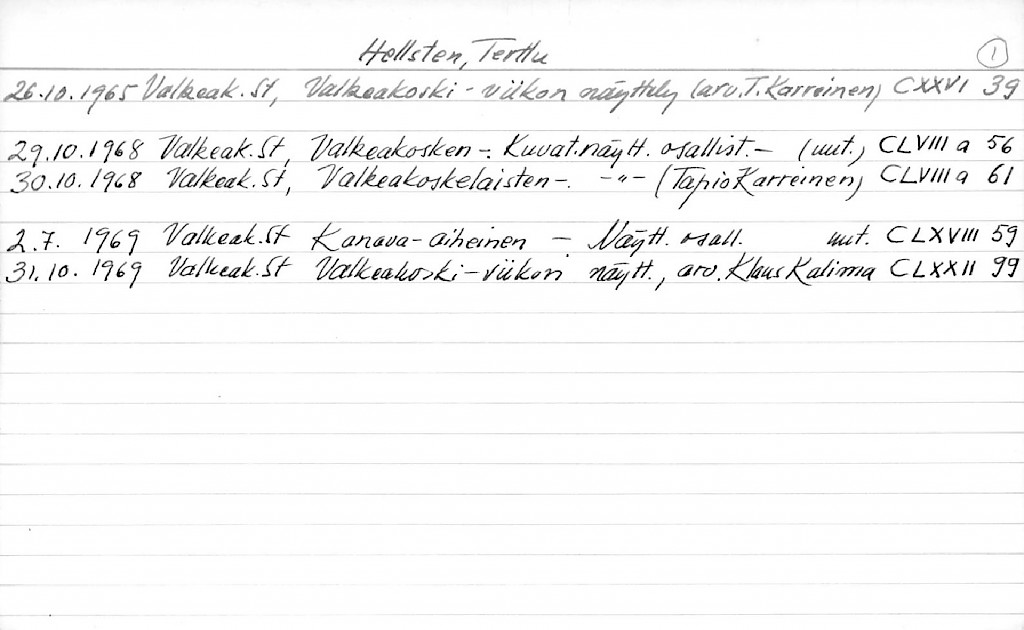 Hellsten, Terttu 1
26.10.1965 Valkeak. St, Valkeakoski-viikon näyttely (arv. T. Karreinen) CXXVI 39
29.10.1968 Valkeak. St, Valkeakosken -. Kuvat.näytt. osallist. - (uut.) CLVIII a 56
30.10.1968 Valkeak. St, Valkeakoskelaisten -. -"- (Tapio Karreinen) CLVIII a 61
2.7. 1969 Valkeak. St Kanava-aiheinen - Näytt. osall. uut. CLXVIII 59
31.10. 1969 Valkeak. St Valkeakoski-viikon näytt., arv. Klaus Kalima CLXXII 99